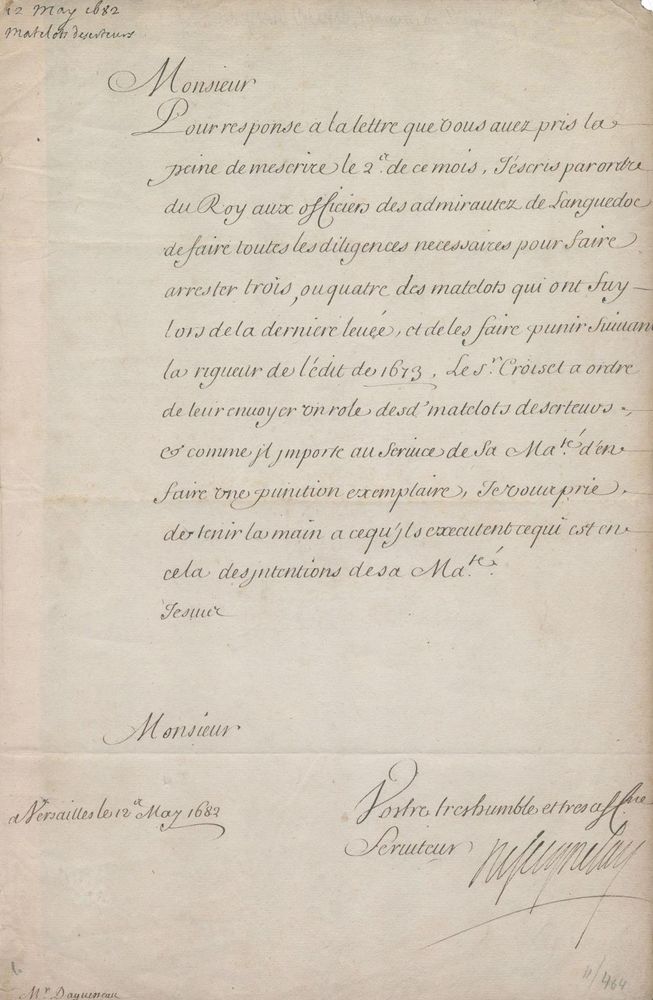 12 May 1682
matelots deserteurs
Monsieur
Pour response a la lettre que vous avez pris la
peine de mescrire le 2e. de ce mois, J'escris par ordre
du Roy aux officiers des admirautez de Languedoc
de faire toutes les diligences necessaires pour faire
arrester trois, ou quatre des matelots qui ont fuy
lors de la derniere levée, et de les faire punir suivant
la rigueur de l'édit de 1673. Le Sr. Croiset a ordre
de leur envoyer un role desd' matelots deserteurs.,
& comme jl jmporte au Service de Sa Ma.té d'en
faire une punition exemplaire, Je vous prie
de tenir la main a ce qu'jls executent ce qui est en
cela des jntentions de sa Ma.té.
Je suis
Monsieur
a Versailles le 12e May 1682
Vostre tres humble et tres affne.
Serviteur
Seignelay
Mr Daguesseau
464